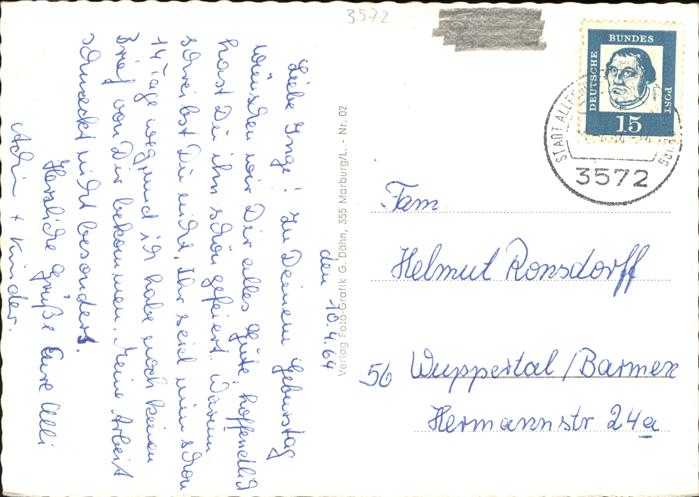 3572
DEUTSCHE
BUNDES
POST
15
3572
den 10.4.64
Liebe Inge! Zu Deinem Geburtstag
wünschen wir Dir alles Gute, hoffendlich
hast Du ihn schön gefeiert. Warum
schreibst Du nicht, Ihr seid nun schon
14 Tage weg und ich habe noch keinen
Brief von Dir bekommen. Meine Arbeit
schmeckt nicht besonders.
Herzliche Grüße Eure Elli
+ Kinder
Verlag Foto-Grafik G. Dähn, 355 Marburg/L. - Nr. 02
Fam
Helmut Ronsdorff
56 Wuppertal/Barmen
Hermannstr 24a